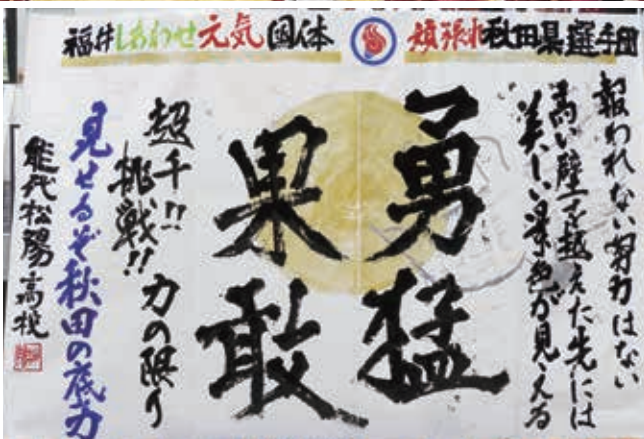 福井しあわせ元気国体
頑張れ秋田県選手団
報われない努力はない
高い壁を越えた先には
美しい景色が見える
勇猛
果敢
超千!!
挑戦!!力の限り
見せるぞ秋田の底力
能代松陽高校